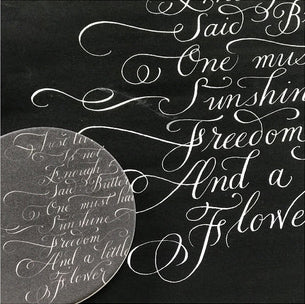 Said B
One mus
Sunshin
Freedom
And a
Flower
Just li
Is not
Enough
Said Butter
One must ha
Sunshine
Freedom
And a little
Flower